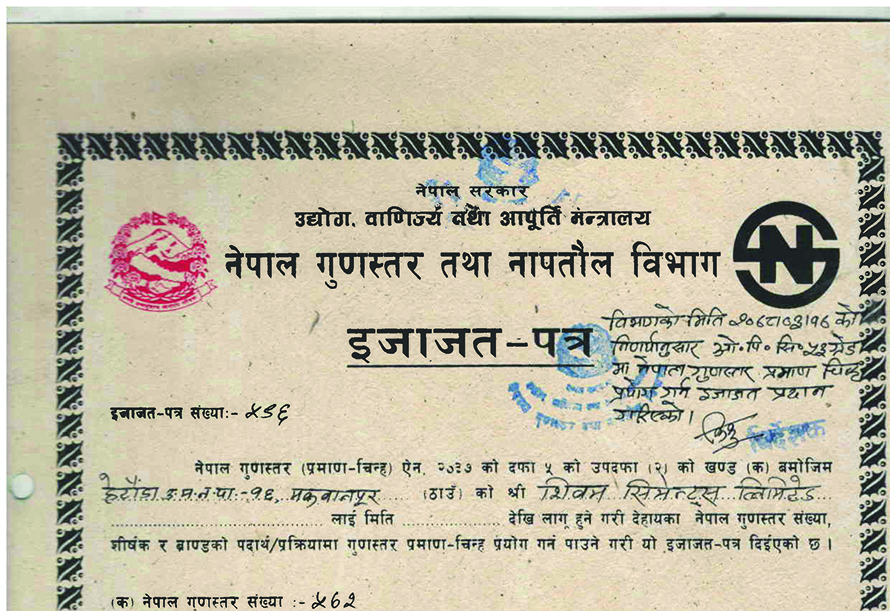 नेपाल सरकार
उद्योग, वाणिज्य तथा आपूर्ति मन्त्रालय
नेपाल गुणस्तर तथा नापतौल विभाग
इजाजत-पत्र
विभागको मिति २०६८।०३।१६ को
निर्णयानुसार ओ॰पि॰सि॰ ५३ ग्रेड
मा नेपाल गुणस्तर प्रमाण चिन्ह
प्रयोग गर्न इजाजत प्रदान
गरिएको।
निर्देशक
इजाजत-पत्र संख्या:-
नेपाल गुणस्तर (प्रमाण-चिन्ह) ऐन, २०३७ को दफा ५ को उपदफा (२) को खण्ड (क) बमोजिम
हेटौंडा उ.म.न.पा.-१६, मकवानपुर (ठाउँ) को श्री शिवम सिमेन्ट्स लिमिटेड
लाई मिति देखि लागू हुने गरी देहायका नेपाल गुणस्तर संख्या,
शीर्षक र ब्राण्डको पदार्थ/प्रक्रियामा गुणस्तर प्रमाण-चिन्ह प्रयोग गर्न पाउने गरी यो इजाजत-पत्र दिइएको छ।
(क) नेपाल गुणस्तर संख्या :-